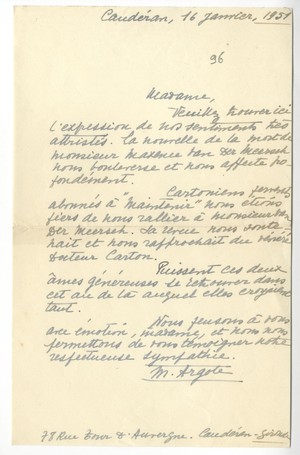 Caudéran, 16 janvier, 1951
96
Madame,
Veuillez trouver ici
l'expression de nos sentiments très
attristés. La nouvelle de la mort de
monsieur Maxence Van Der Meersch
nous bouleverse et nous affecte pro
fondément.
Cartoniens fervents
abonnés à "Maintenir" nous étions
fiers de nous rallier à monsieur Van
Der Meersch. Sa revue nous soute
nait et nous rapprochait du vénéré
Docteur Carton.
Puissent ces deux
âmes généreuses se retrouver dans
cet au-delà auquel elles croyaient
tant.
Nous pensons à vous
avec émotion, madame, et nous nous
permettons de vous témoigner notre
respectueuse sympathie.
M. Argote
78 Rue Tour d'Auvergne. Caudéran-Gironde